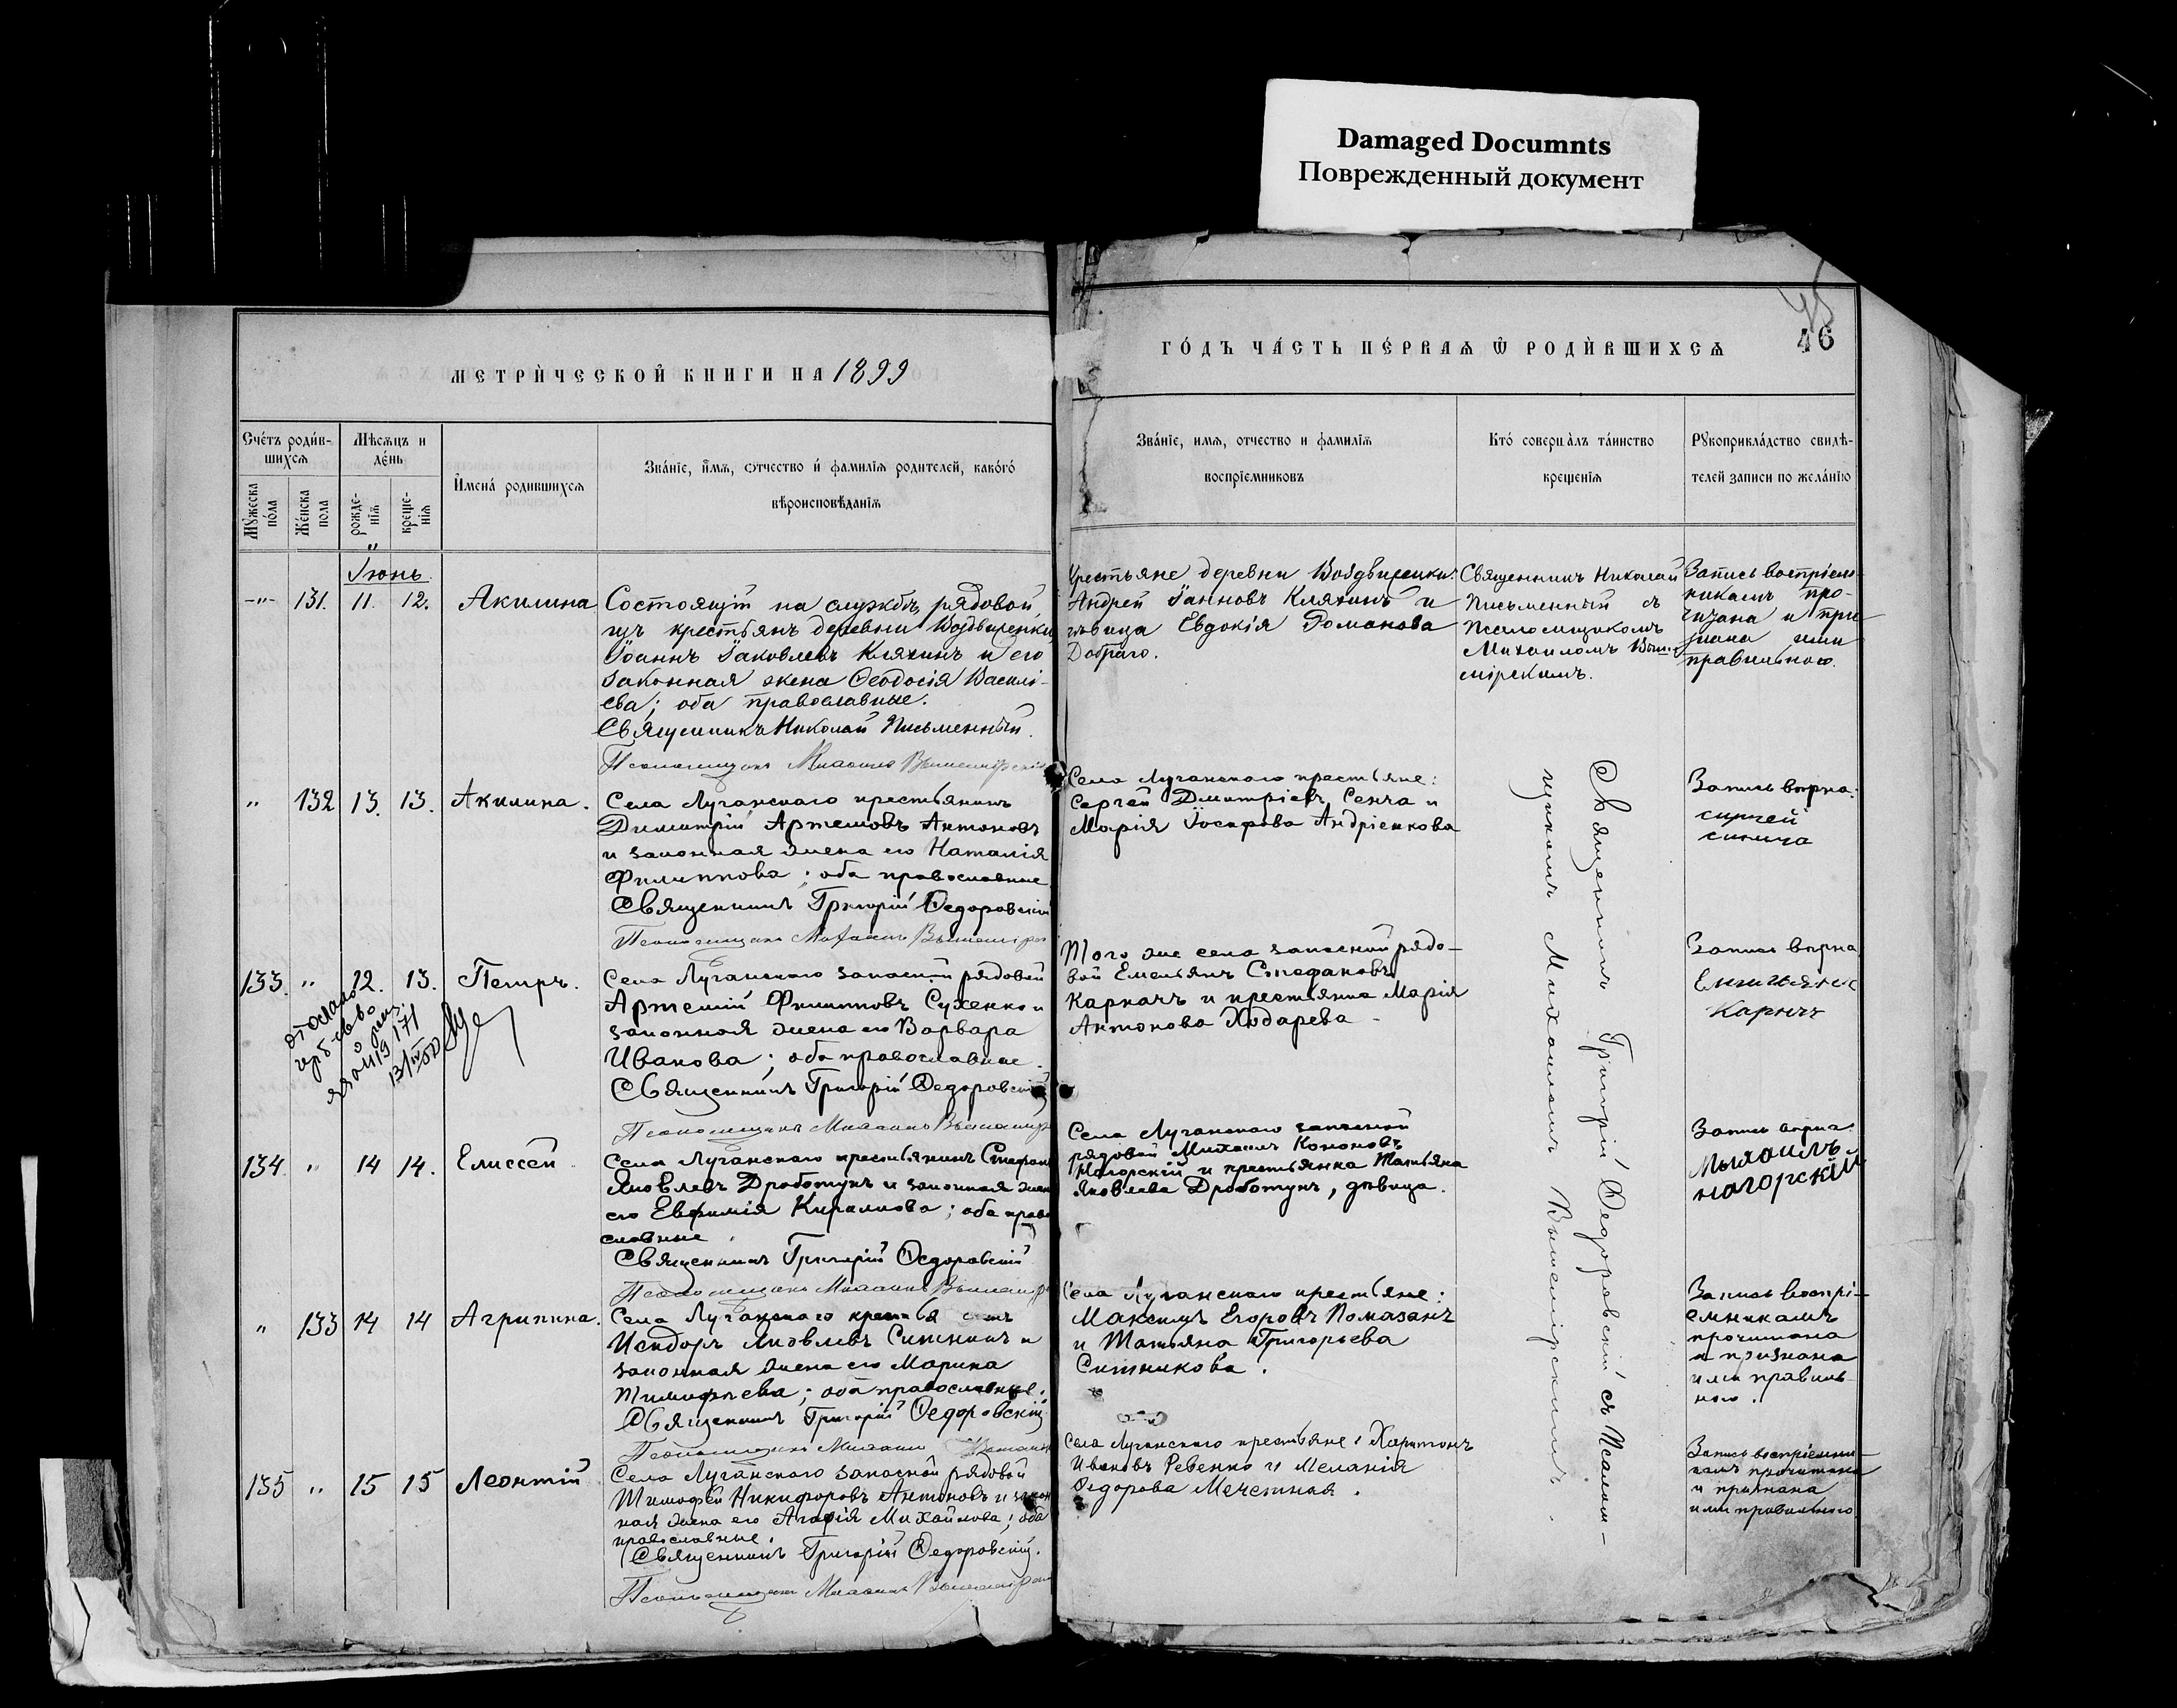 Damaged Documnts
Поврежденный документ
МЕТРИЧЕСКОЙ КНИГИ НА 1899
ГОДЪ ЧАСТЬ ПЕРВАѦ Ѡ РОДИВШИХСѦ
46
Счетъ родив-
шихсѧ
Мужеска
пола
Женска
пола
Мѣсѧцъ и
день
рожде-
нїѧ
креще-
нїѧ
Имена родившихсѧ
Званїе, имѧ, отчество и фамилїѧ родителей, какого
вѣроисповѣданїѧ
Званїе, имѧ, отчество и фамилїѧ
воспрїемниковъ
Кто совершалъ таинство
крещенїѧ
Рукоприкладство свидѣ-
телей записи по желанїю
Іюнь
-"- 131. 11. 12. Акилина
Состоящій на службѣ рядовой,
изъ крестьянъ деревни Воздвиженки
Іоаннъ Іаковлевъ Кляхинъ и его
законная жена Ѳеодосія Василі-
ева; оба православные.
Священникъ Николай Письменный.
Псаломщикъ Михаилъ
Крестьяне деревни Воздвиженки:
Андрей Іанновъ Кляхинъ и
дѣвица Евдокія Романова
Добраго.
Священникъ Николай
Письменный съ
Псаломщикомъ
Михаиломъ Выше-
мірскимъ.
Запись воспріем-
никамъ про-
читана и при
знана ими
правильною.
" 132 13. 13. Акилина.
Села Луганскаго крестьянинъ
Димитрій Артемовъ Антоновъ
и законная жена его Наталія
Филиппова; оба православные
Священникъ Григорій Ѳедоровскій
Псаломщикъ Михаилъ
Села Луганскаго крестьяне:
Сергей Дмитріевъ Сенча и
Марія Іосафова Андріенкова
Запись вѣрна:
133. " 12. 13. Петръ.
Села Луганскаго запасной рядовой
Артемій Филипповъ Сухенко и
законная жена его Варвара
Иванова; оба православные.
Священникъ Григорій Ѳедоровскій
Псаломщикъ Михаилъ
Того же села запасной рядо-
вой Емельянъ Стефановъ
Карначъ и крестьянка Марія
Антонова Ходарева
Запись вѣрна
134. " 14 14. Елиссей
Села Луганскаго крестьянинъ Стефанъ
Яковлевъ Дроботунъ и законная жена
его Евфимія Кириллова; оба право
славные.
Священникъ Григорій Ѳедоровскій
Псаломщикъ Михаилъ
Села Луганскаго запасной
рядовой Михаилъ Кононовъ
Нагорскій и крестьянка Татьяна
Яковлева Дроботунъ, дѣвица.
Запись вѣрна
Мыхаилъ
нагорскій
" 133 14 14 Агрипина.
Села Луганскаго
Исидоръ Яковлевъ Ситникъ и
законная жена его Марина
Тимофѣева; оба православные.
Священникъ Григорій Ѳедоровскій
Псаломщикъ Михаилъ
Села Луганскаго крестьяне:
Максимъ Егоровъ Помазанъ
и Татьяна Григорьева
Ситникова.
Запись воспрі-
емникамъ
прочитана
и признана
ими правиль-
ною.
135 " 15 15 Леонтій
Села Луганскаго запасной рядовой
Тимофей Никифоровъ Антоновъ и закон
ная жена его Агафія Михайлова; оба
православные.
Священникъ Григорій Ѳедоровскій.
Псаломщикъ Михаилъ
Села Луганскаго крестьяне: Харитонъ
Ивановъ Ревенко и Меланія
Ѳедорова Мечетная.
Запись воспріемни-
камъ прочитана
и признана
ими правильною
Священникъ Григорій Ѳедоровскій съ Псалом-
щикомъ Михаиломъ Вышемірскимъ.